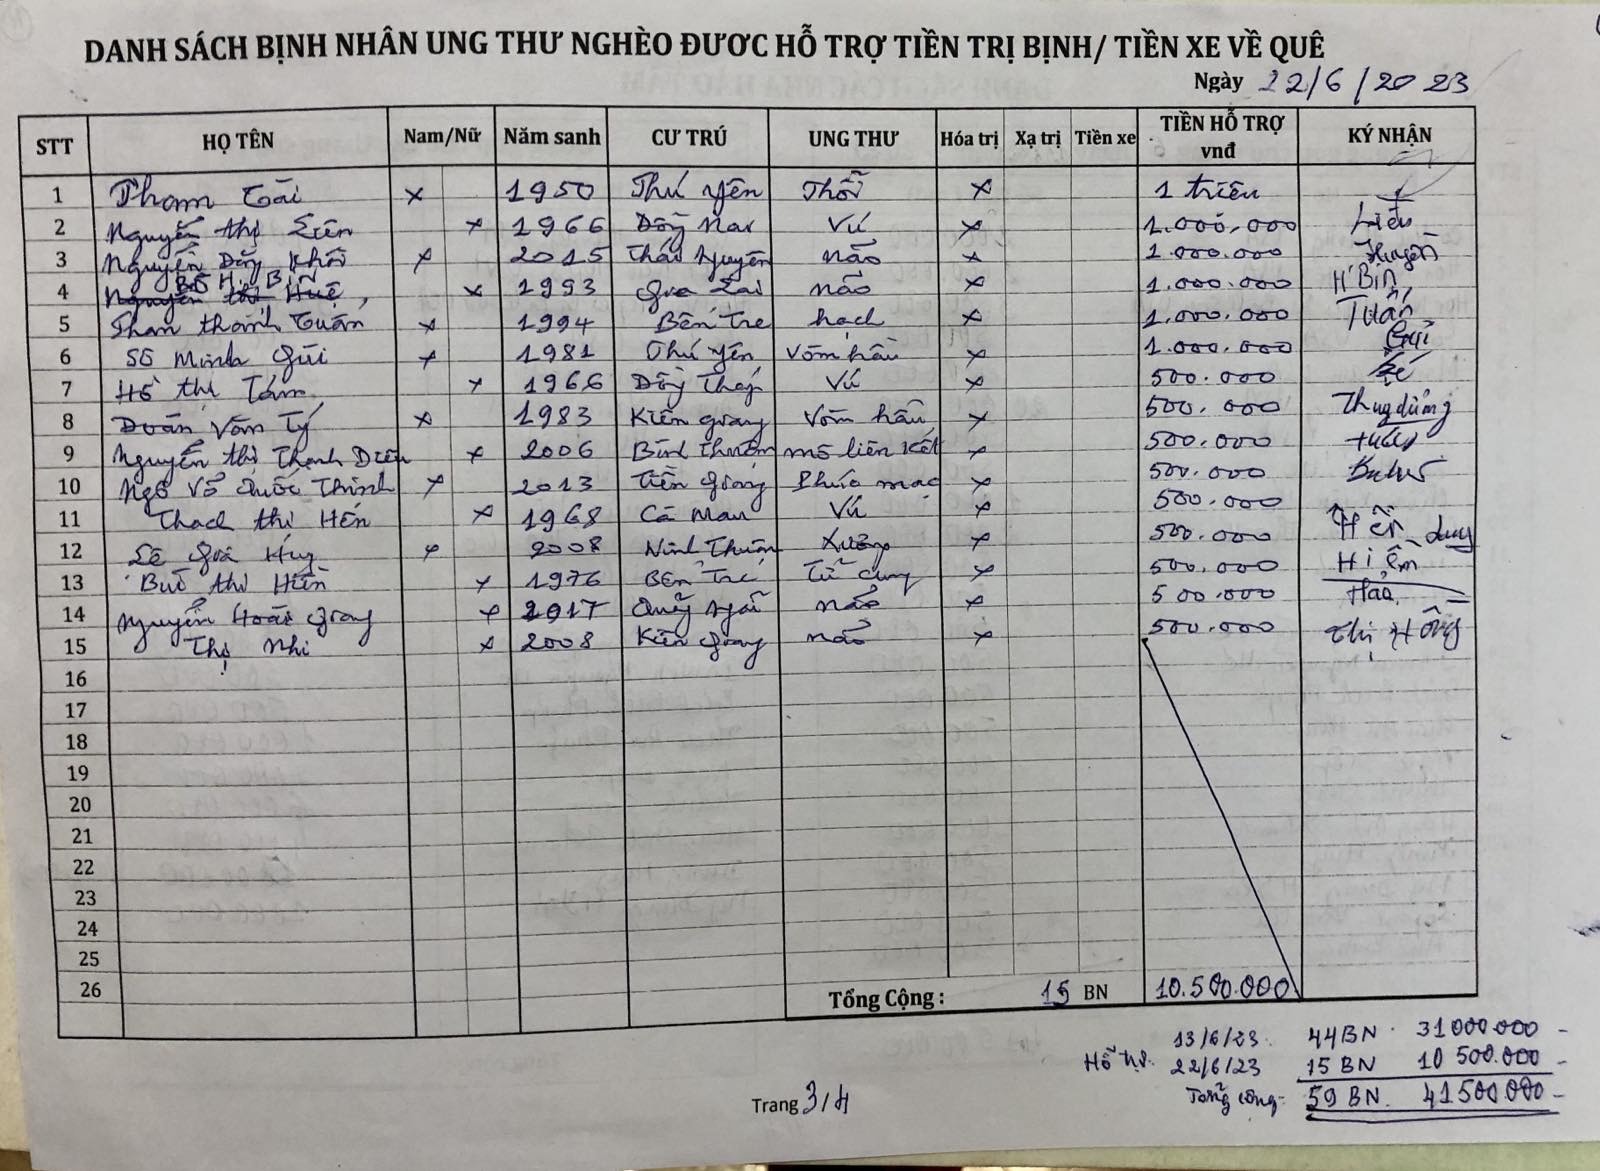 DANH SÁCH BỊNH NHÂN UNG THƯ NGHÈO ĐƯƠC HỖ TRỢ TIỀN TRỊ BỊNH/ TIỀN XE VỀ QUÊ
Ngày 22/6/2023
STT HỌ TÊN Nam/Nữ Năm sanh CƯ TRÚ UNG THƯ Hóa trị Xạ trị Tiền xe TIỀN HỖ TRỢ vnđ KÝ NHẬN
1 Phạm x 1950 Phú Yên Phổi x 1 triệu
2 Nguyễn thị x 1966 Đồng Nai Vú x 1.000.000
3 Nguyễn Đăng Khôi x 2015 Thái Nguyên não x 1.000.000 Huyền
4 x 1993 Gia Lai não x 1.000.000 H'Bin
5 Phan thành Tuấn x 1994 Bến Tre hạch x 1.000.000 Tuấn
6 Sô Minh Gửi x 1981 Phú Yên Vòm hầu x 1.000.000 Gửi
7 Hồ thị Tám x 1966 Đồng Tháp Vú x 500.000
8 Đoàn Văn Tý x 1983 Kiên Giang Vòm hầu x 500.000
9 Nguyễn thị Thanh x 2006 Bình Thuận mô liên kết x 500.000
10 Ngô Võ Quốc Thịnh x 2013 Tiền Giang Phúc mạc x 500.000
11 Thạch thị Hến x 1968 Cà Mau Vú x 500.000
12 Lê Gia Huy x 2008 Ninh Thuận Xương x 500.000
13 Bùi thị Hiền x 1976 Bến Tre Tử cung x 500.000
14 Nguyễn Hoài Giang x 2017 Quảng Ngãi não x 500.000
15 Thị Nhi x 2008 Kiên Giang não x 500.000 Thị Hồng
16
17
18
19
20
21
22
23
24
25
26
Tổng Cộng : 15 BN 10.500.000
13/6/23 44BN 31000000 -
Hỗ trợ 22/6/23 15 BN 10 500.000 -
Tổng cộng 59 BN 41500000 -
Trang 3/4